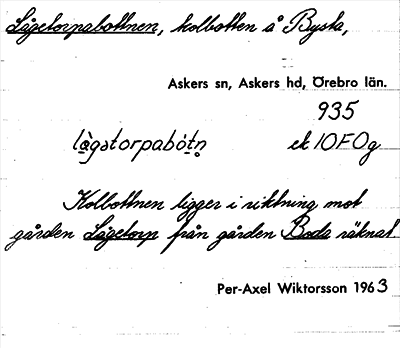 Lågetorpabottnen, kolbotten å Bysta,
Askers sn, Askers hd, Örebro län.
935
lågatorpabòtn ek 10F0g
Kolbottnen ligger i riktning mot
gården Lågetorp från gården Boda räknat.
Per-Axel Wiktorsson 1963